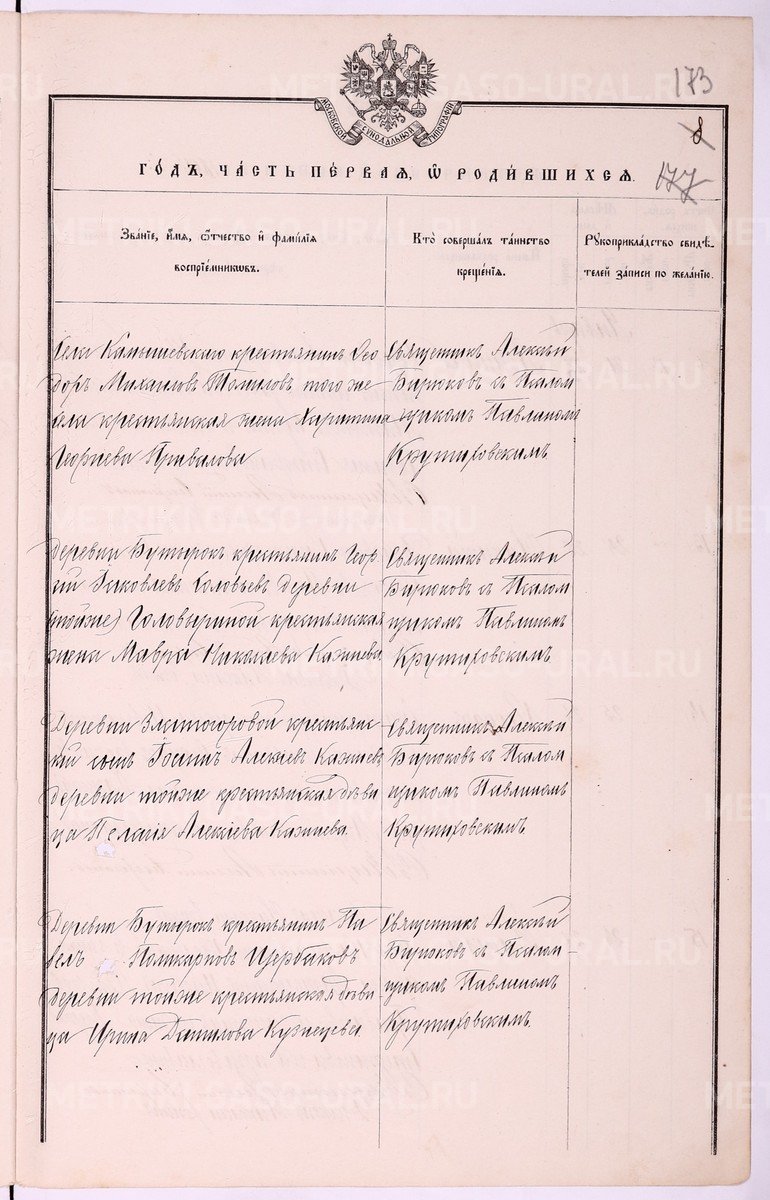 173
8
177
МОСКОВСКОЙ СѴНОДАЛЬНОЙ ТИПОГРАФІИ
ГО́ДЪ, ЧА́СТЬ ПЕ́РВАЯ, Ѿ РОДИ́ВШИХСЯ.
Зва́нїе, и҆́мя, ѻ҆́тчество и҆ фами́лїя
воспрїе́мникѡвъ.
Кто̀ соверша́лъ та́инство
креще́нїѧ.
Рꙋкоприкла́дство свидѣ́-
телей за́писи по жела́нїю.
Села Камышевскаго крестьянинъ Ѳео
доръ Михаиловъ Томиловъ того же
села крестьянская жена Харитина
Георгиева Привалова
Священникъ Алексѣй
Бирюковъ съ Псалом
щикомъ Павлиномъ
Крутиховскимъ
Деревни Бутырокъ крестьянинъ Геор
гій Іаковлевъ Соловьевъ деревни
(тойже) Головыриной крестьянская
жена Мавра Николаева Казанцева
Священникъ Алексѣй
Бирюковъ съ Псалом
щикомъ Павлиномъ
Крутиховскимъ
Деревни Златогоровой крестьянс
кій сынъ Іоаннъ Алексіевъ
деревни тойже крестьянская дѣви
ца Пелагія Алексіева
Священникъ Алексѣй
Бирюковъ съ Псалом
щикомъ Павлиномъ
Крутиховскимъ
Деревни Бутырокъ крестьянинъ Па
велъ Поликарповъ Щербаковъ
деревни тойже крестьянская дѣви
ца Ирина Данилова Кузнецева
Священникъ Алексѣй
Бирюковъ съ Псалом-
щикомъ Павлиномъ
Крутиховскимъ
METRIKI.GASO-URAL.RU